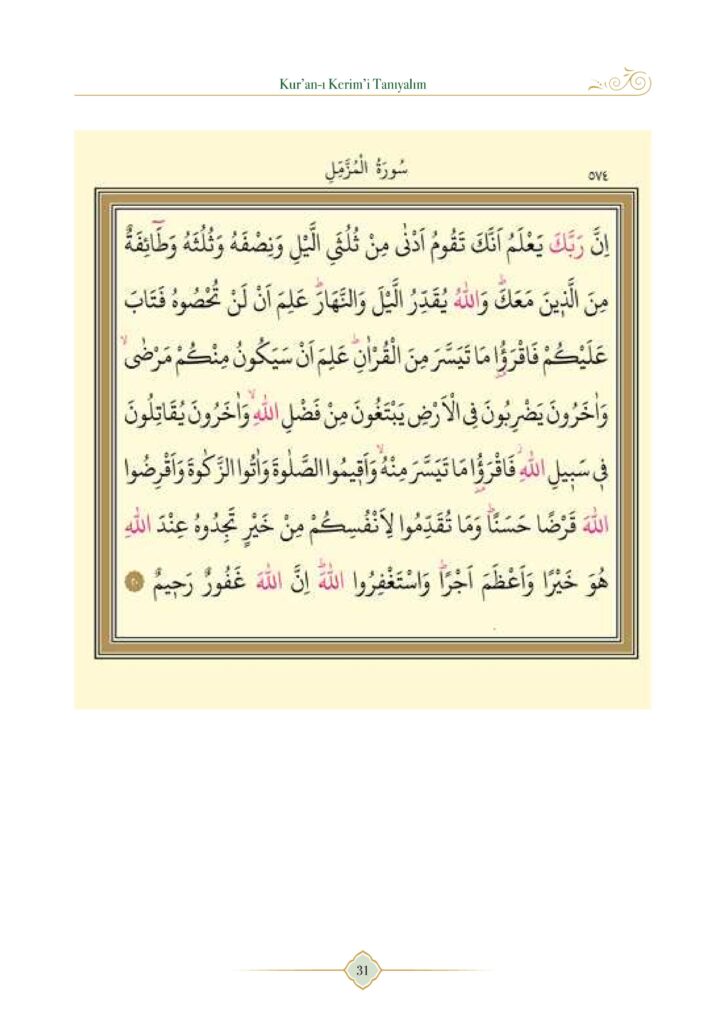 Kur'an-ı Kerim'i Tanıyalım
سُورَةُ الْمُزَّمِّلِ
٥٧٤
اِنَّ رَبَّكَ يَعْلَمُ اَنَّكَ تَقُومُ اَدْنٰى مِنْ ثُلُثَيِ الَّيْلِ وَنِصْفَهُ وَثُلُثَهُ وَطَٓائِفَةٌ
مِنَ الَّذ۪ينَ مَعَكَۜ وَاللّٰهُ يُقَدِّرُ الَّيْلَ وَالنَّهَارَۜ عَلِمَ اَنْ لَنْ تُحْصُوهُ فَتَابَ
عَلَيْكُمْ فَاقْرَؤُ۫ا مَا تَيَسَّرَ مِنَ الْقُرْاٰنِۜ عَلِمَ اَنْ سَيَكُونُ مِنْكُمْ مَرْضٰىۙ
وَاٰخَرُونَ يَضْرِبُونَ فِي الْاَرْضِ يَبْتَغُونَ مِنْ فَضْلِ اللّٰهِۙ وَاٰخَرُونَ يُقَاتِلُونَ
ف۪ي سَب۪يلِ اللّٰهِۘ فَاقْرَؤُ۫ا مَا تَيَسَّرَ مِنْهُۙ وَاَق۪يمُوا الصَّلٰوةَ وَاٰتُوا الزَّكٰوةَ وَاَقْرِضُوا
اللّٰهَ قَرْضًا حَسَنًاۜ وَمَا تُقَدِّمُوا لِاَنْفُسِكُمْ مِنْ خَيْرٍ تَجِدُوهُ عِنْدَ اللّٰهِ
هُوَ خَيْرًا وَاَعْظَمَ اَجْرًاۜ وَاسْتَغْفِرُوا اللّٰهَۜ اِنَّ اللّٰهَ غَفُورٌ رَح۪يمٌ ٢٠
31